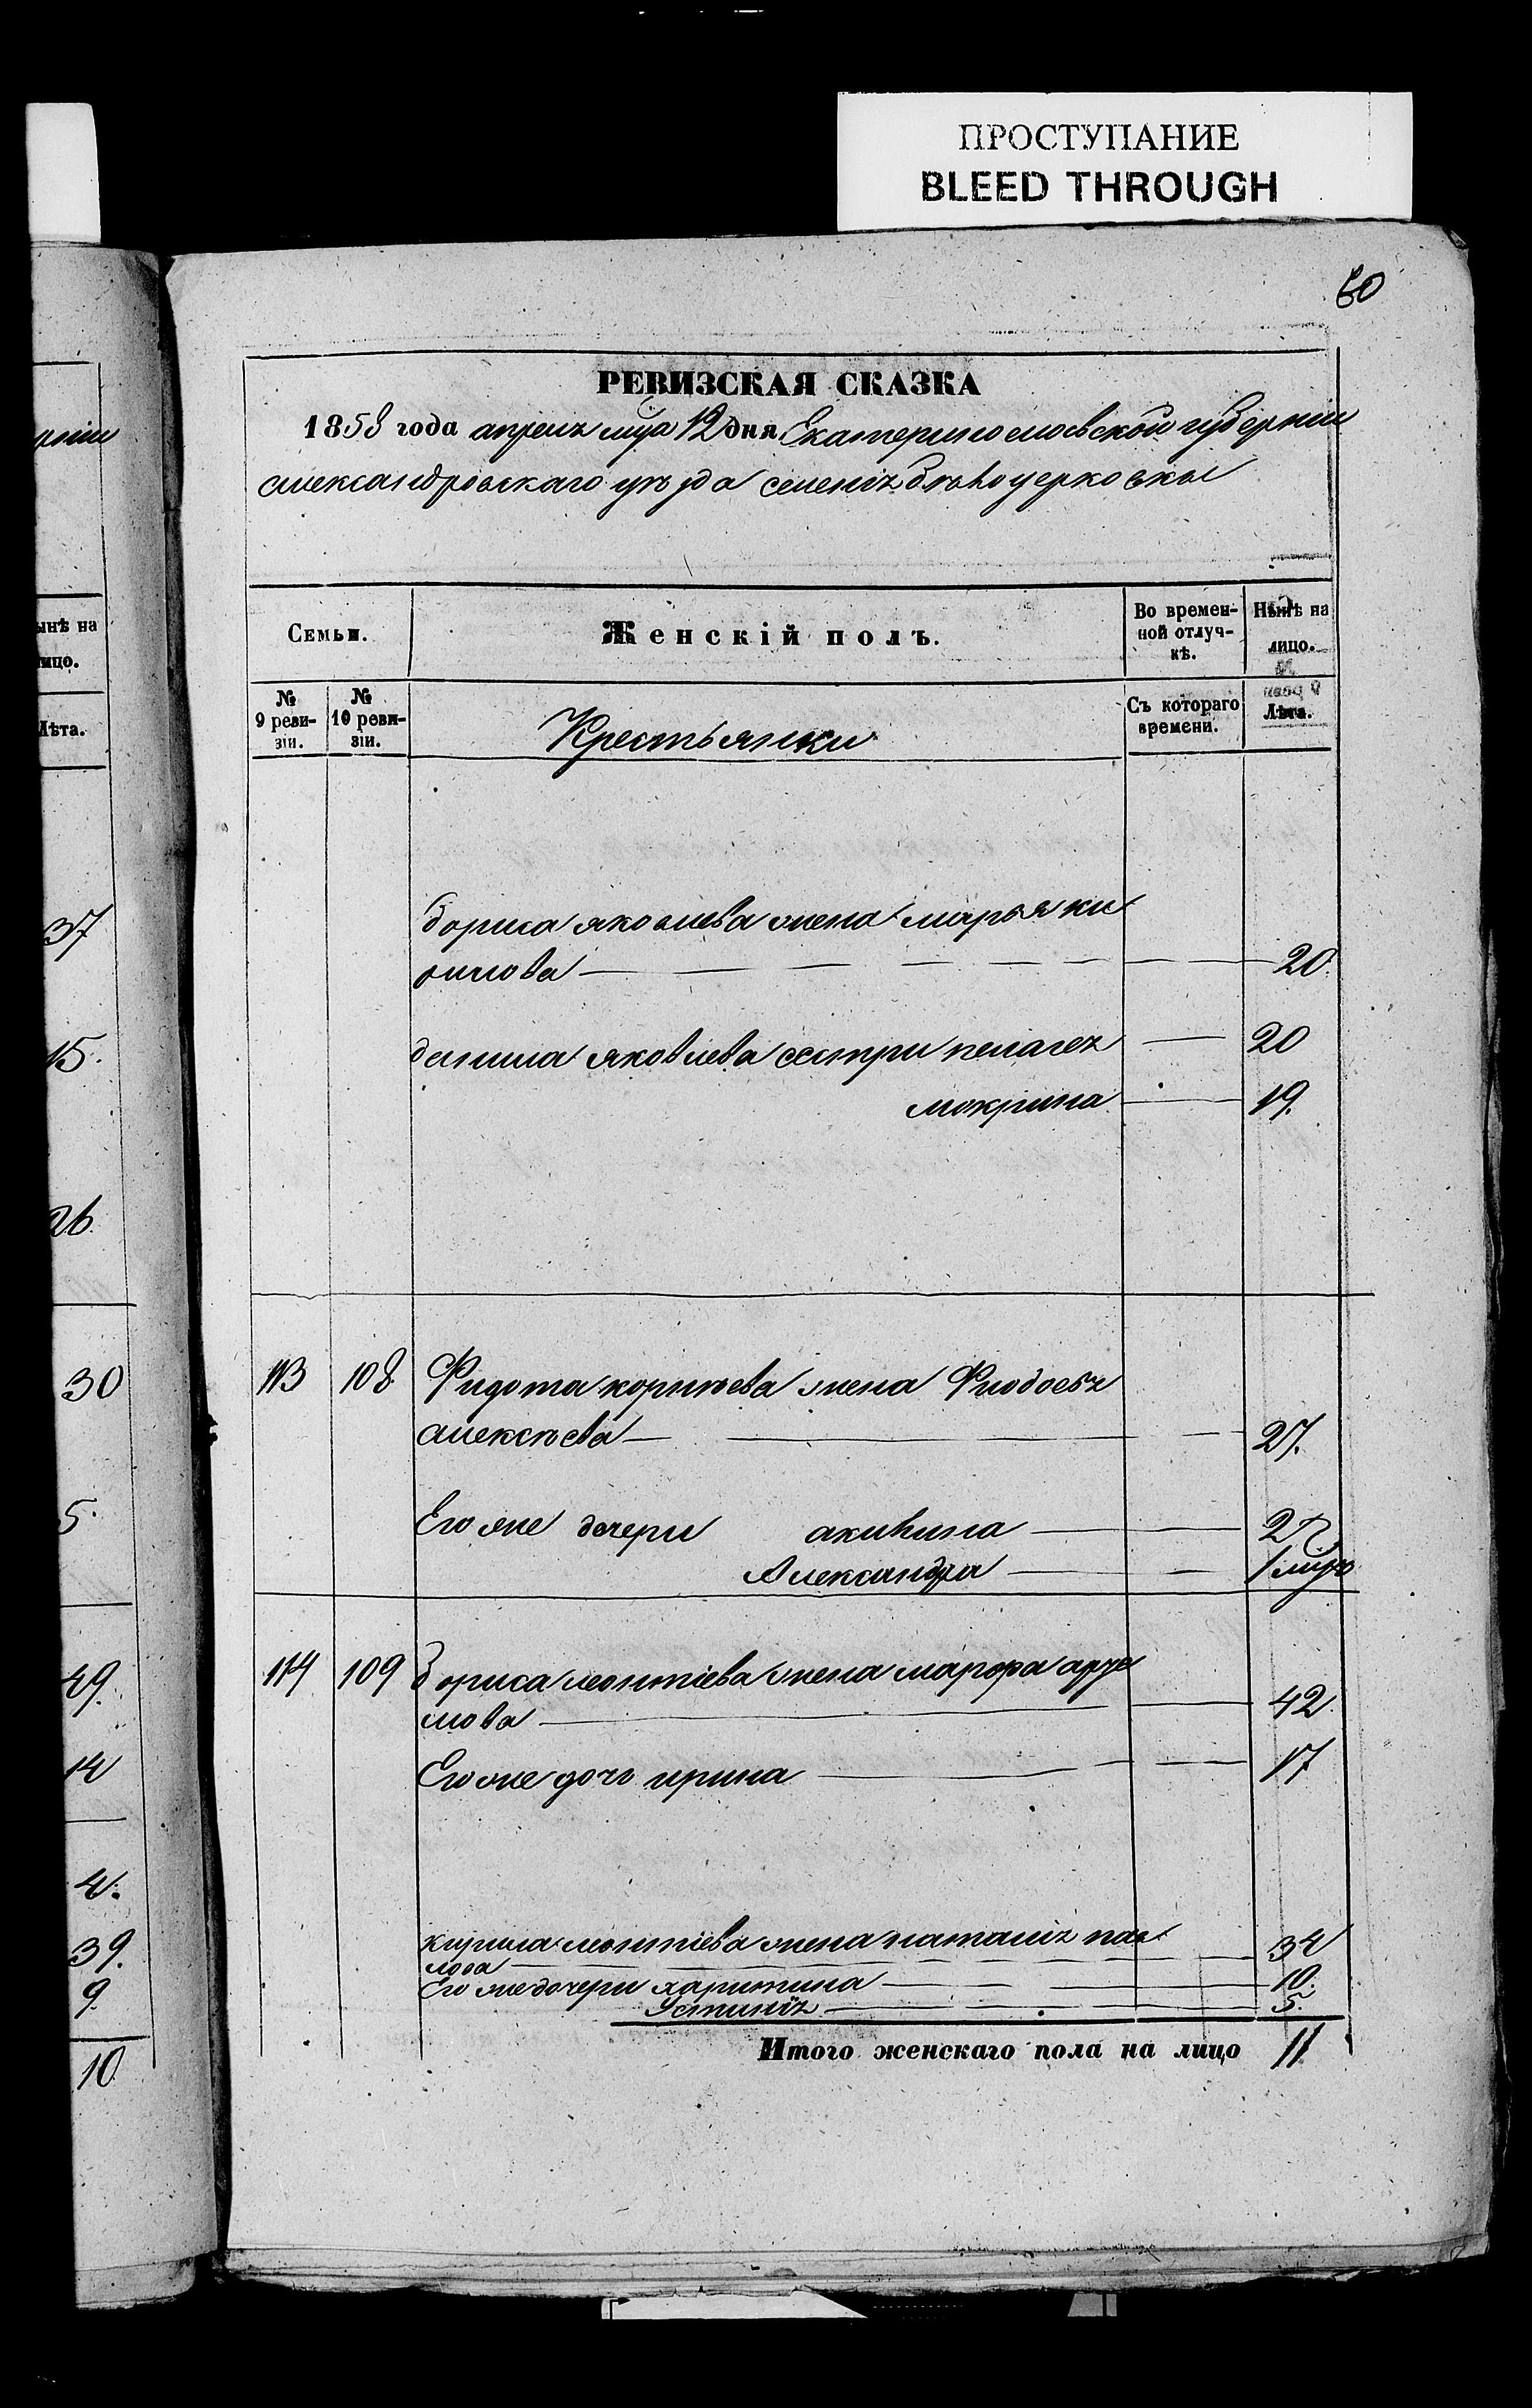 ПРОСТУПАНИЕ
BLEED THROUGH
60
РЕВИЗСКАЯ СКАЗКА
1858 года апреля мца 12 дня Екатеринославской губернии
александровскаго уезда селенія белоцерковки
Семьи.
Женскій полъ.
Во времен-
ной отлуч-
кѣ.
Нынѣ на
лицо.
№
9 реви-
зіи.
№
10 реви-
зіи.
Крестьянки
Съ котораго
времени.
Лѣта.
бориса яковлева жена марья ки
рилова 20
данила яковлева сестри пелагея 20
мокрина 19.
113 108 Фидота корнѣева жена Фиодосья
алексѣева 27.
Его же дочери акилина 2
Александра
114 109 бориса леонтіева жена марфа
мова 42
Его же дочь ирина 17
кирила леонтіева жена наталія пав
лова 34
Его же дочери харитина 10.
Устинія 5.
Итого женскаго пола на лицо 11
ынѣ на
ицо.
Лѣта.
37
15.
26
30
5.
49.
14
4.
39.
9.
10